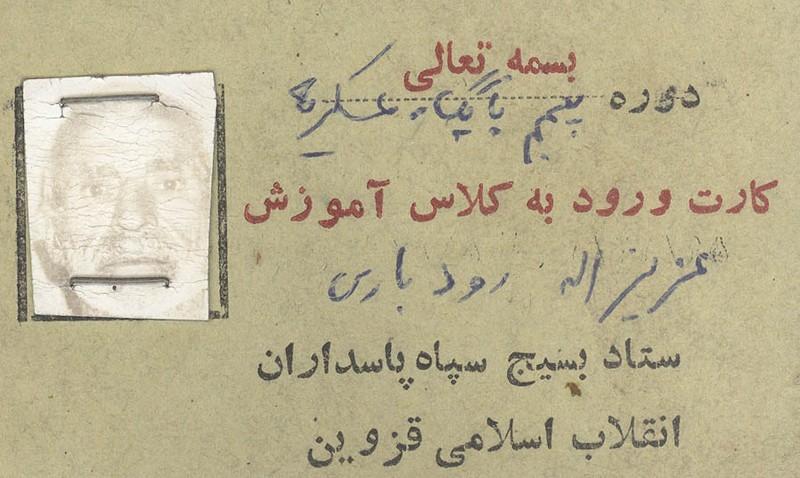 بسمه تعالی
دوره پنجم پایگاه عسکریه
کارت ورود به کلاس آموزش
عزیز اله رودباری
ستاد بسیج سپاه پاسداران
انقلاب اسلامی قزوین